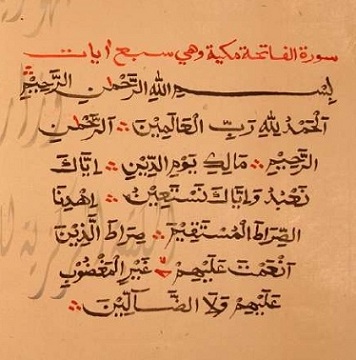 سورة الفاتحة مكية وهي سبع ايات
بِسْمِ اللهِ الرَّحْمٰنِ الرَّحِيْمِ
اَلْحَمْدُ لِلهِ رَبِّ الْعَالَمِيْنَ ۞ اَلرَّحْمٰنِ
الرَّحِيْمِ ۞ مَالِكِ يَوْمِ الدِّيْنِ ۞ اِيَّاكَ
نَعْبُدُ وَاِيَّاكَ نَسْتَعِيْنُ ۞ اِهْدِنَا
الصِّرَاطَ الْمُسْتَقِيْمَ ۞ صِرَاطَ الَّذِيْنَ
اَنْعَمْتَ عَلَيْهِمْ غَيْرِ الْمَغْضُوْبِ
عَلَيْهِمْ وَلَا الضَّالِّيْنَ ۞